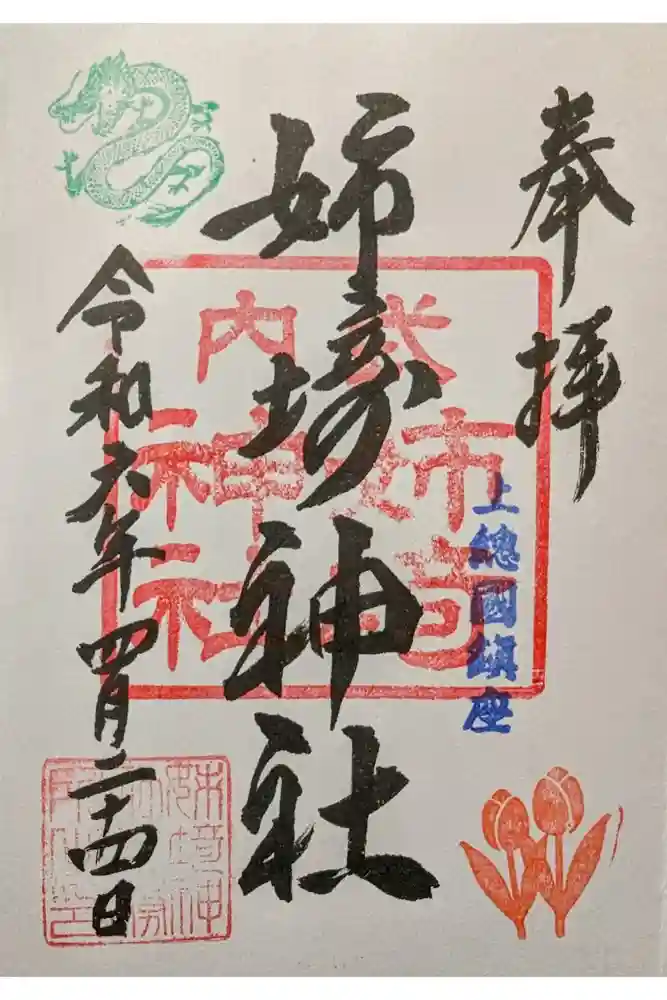 奉拝
上總國鎮座
姉埼神社
式内
姉埼
神社
令和六年四月二十四日